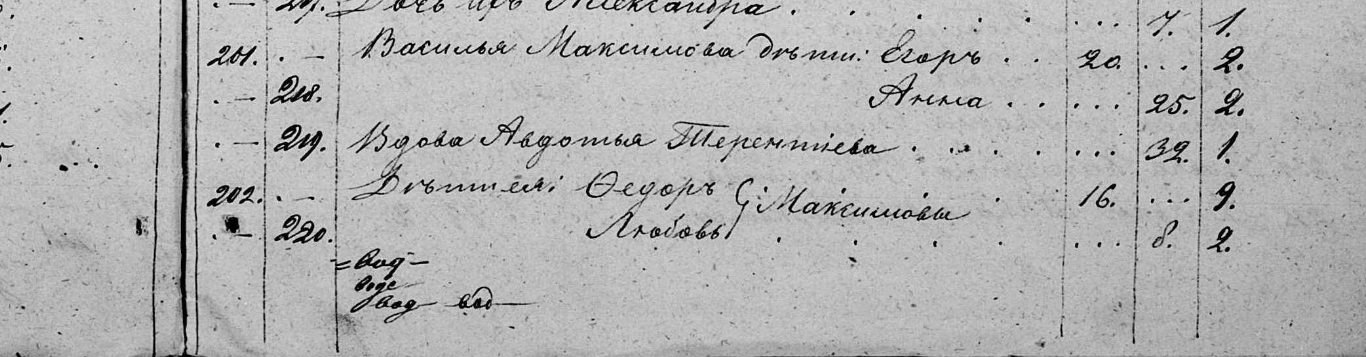 . — 217. Дочь ихъ Александра . . . . . . . . 7. 1.
201. . — Василья Максимова дѣти: Егоръ . . 20. ... 2.
. — 218. Анна . . ... 25. 2.
. — 219. Вдова Авдотья Терентіева . . . . ... 32. 1.
202. . — Дѣти ея: Ѳедоръ } Максимовы . 16. ... 2.
. — 220. Любовь . . . . . ... 8. 2.
= вод —
воде
вод — вод —